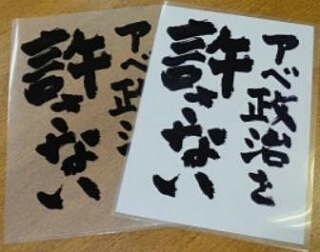 アベ政治を
許さない
アベ政治
許さない